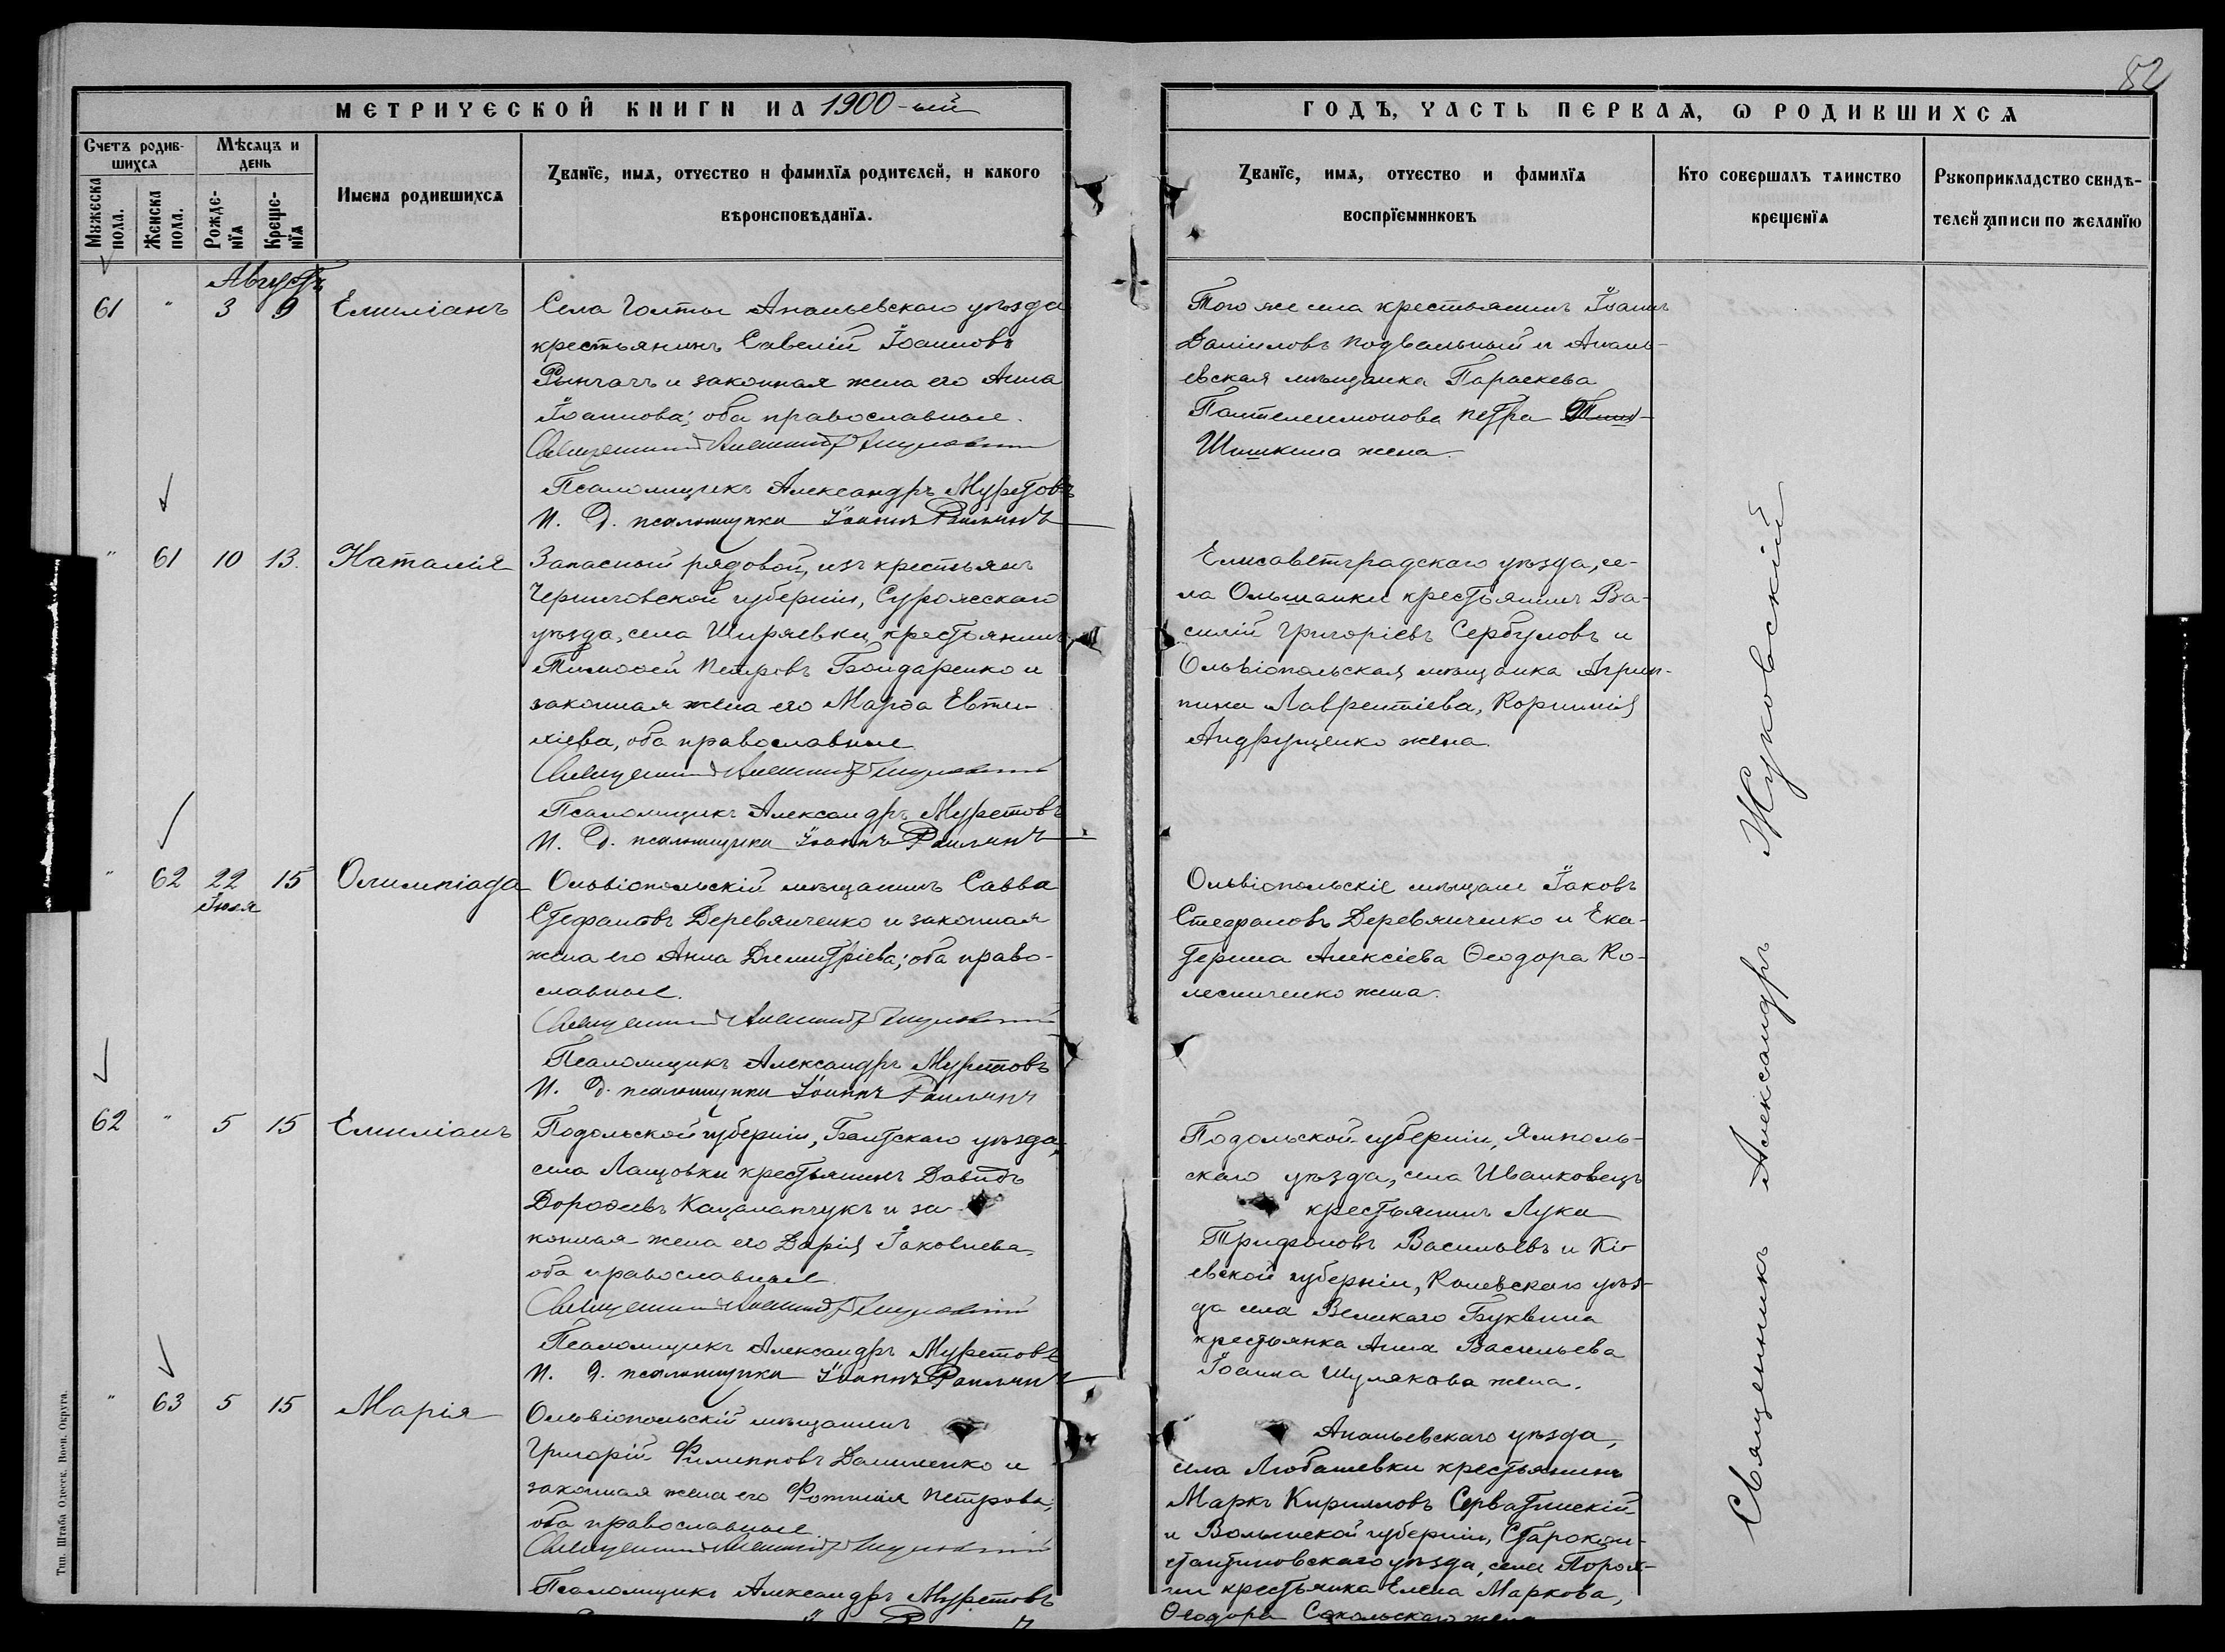 82
МЕТРИЧЕСКОЙ КНИГИ НА 1900-ый
ГОДЪ, ЧАСТЬ ПЕРВАЯ, Ѡ РОДИВШИХСЯ
Счетъ родив-
шихся
Мѣсяцъ и
день
Мужеска пола.
Женска пола.
Рожде-
нїя
Креще-
нїя
Имена родившихся
Званїе, имя, отчество и фамилїя родителей, и какого
вѣроисповѣданїя.
Званїе, имя, отчество и фамилїя
воспрїемниковъ
Кто совершалъ таинство
крещенїя
Рукоприкладство свидѣ-
телей записи по желанїю
Августъ
61 " 3 9 Емиліанъ
Села Голты Ананьевскаго уѣзда
крестьянинъ Савелій Іоанновъ
и законная жена его Анна
Іоаннова; оба православные.
Священникъ Александръ Жуковскій
Псаломщикъ Александръ Муретовъ
И. д. псаломщика Іоаннъ
Того же села крестьянинъ Іоаннъ
Данииловъ Подвальный и Анань-
евская мѣщанка Параскева
Пантелеимонова Петра
Шишкина жена.
" 61 10 13. Наталія
Запасный рядовой, изъ крестьянъ
Черниговской губерніи, Суражскаго
уѣзда, села Ширяевки, крестьянинъ
Тимоѳей Петровъ Бондаренко и
законная жена его Марѳа Евти-
хіева, оба православные
Священникъ Александръ Жуковскій
Псаломщикъ Александръ Муретовъ
И. д. псаломщика Іоаннъ
Елисаветградскаго уѣзда, се-
ла Ольшанки крестьянинъ Ва-
силій Григоріевъ Сербуловъ и
Ольвіопольская мѣщанка Агрип-
пина Лаврентіева, Корнилія
Андрущенко жена.
" 62 22 15 Олимпіада
Іюля
Ольвіопольскій мѣщанинъ Савва
Стефановъ Деревянченко и законная
жена его Анна Димитріева; оба право-
славные.
Священникъ Александръ Жуковскій
Псаломщикъ Александръ Муретовъ
И. д. псаломщика Іоаннъ
Ольвіопольскіе мѣщане Іаковъ
Стефановъ Деревянченко и Ека-
терина Алексіева Ѳеодора Ко-
лесниченко жена.
62 " 5 15 Емиліанъ
Подольской губерніи, Балтскаго уѣзда,
села Лащовки крестьянинъ Давидъ
Дороѳеевъ Кацалапчукъ и за-
конная жена его Дарія Іаковлева,
оба православные
Священникъ Александръ Жуковскій
Псаломщикъ Александръ Муретовъ
И. д. псаломщика Іоаннъ
Подольской губерніи, Ямполь-
скаго уѣзда, села Иванковецъ
крестьянинъ Лука
Трифоновъ Васильевъ и Кі-
евской губерніи, Каневскаго уѣз-
да села Великаго Буквина
крестьянка Анна Васильева
Іоанна Шулякова жена.
" 63 5 15 Марія
Ольвіопольскій мѣщанинъ
Григорій Филипповъ Даниленко и
законная жена его Фотинія Петрова;
оба православные
Священникъ Александръ Жуковскій
Псаломщикъ Александръ Муретовъ
Ананьевскаго уѣзда,
села Любашевки крестьянинъ
Маркъ Кирилловъ Серватинскій
и Волынской губерніи, Старокон-
стантиновскаго уѣзда, села
крестьянка Елена Маркова,
Ѳеодора Сокольскаго жена
Священникъ Александръ Жуковскій
Тип. Штаба Одесск. Воен. Округа.